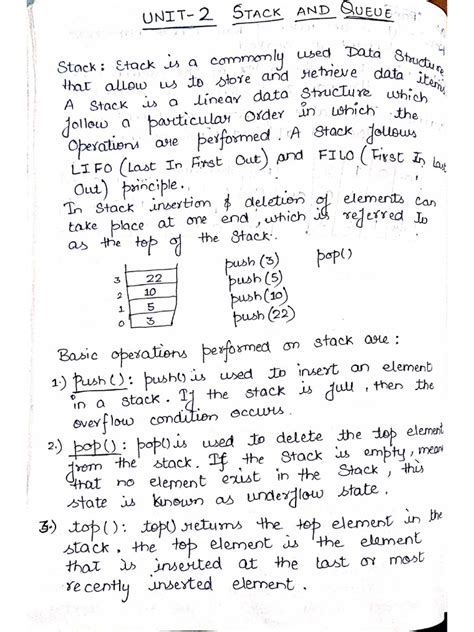 UNIT-2 STACK AND QUEUE
Stack: Stack is a commonly used Data Structure
that allow us to store and retrieve data items
A Stack is a linear data structure which
follow a particular Order in which the
Operations are performed. A Stack follows
LIFO (Last In First Out) and FILO (First In Last
Out) principle.
In Stack insertion & deletion of elements can
take place at one end, which is referred to
as the top of the Stack.
push(3) pop()
3 22 push(5)
2 10 push(10)
1 5 push(22)
0 3
Basic operations performed on stack are:
1.) Push(): push() is used to insert an element
in a stack. If the stack is full, then the
overflow condition occurs.
2.) pop(): pop() is used to delete the top element
from the stack. If the Stack is empty, mean
that no element exist in the Stack, this
state is known as underflow state.
3.) top(): top() returns the top element in the
stack. the top element is the element
that is inserted at the last or most
recently inserted element.